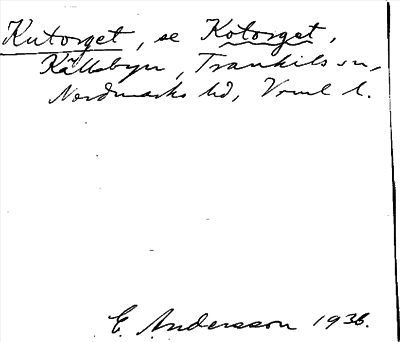 Kutorget, se Kotorget,
Källsbyn, Trankils sn,
Nordmarks hd, Vrml l.
E. Andersson 1936.